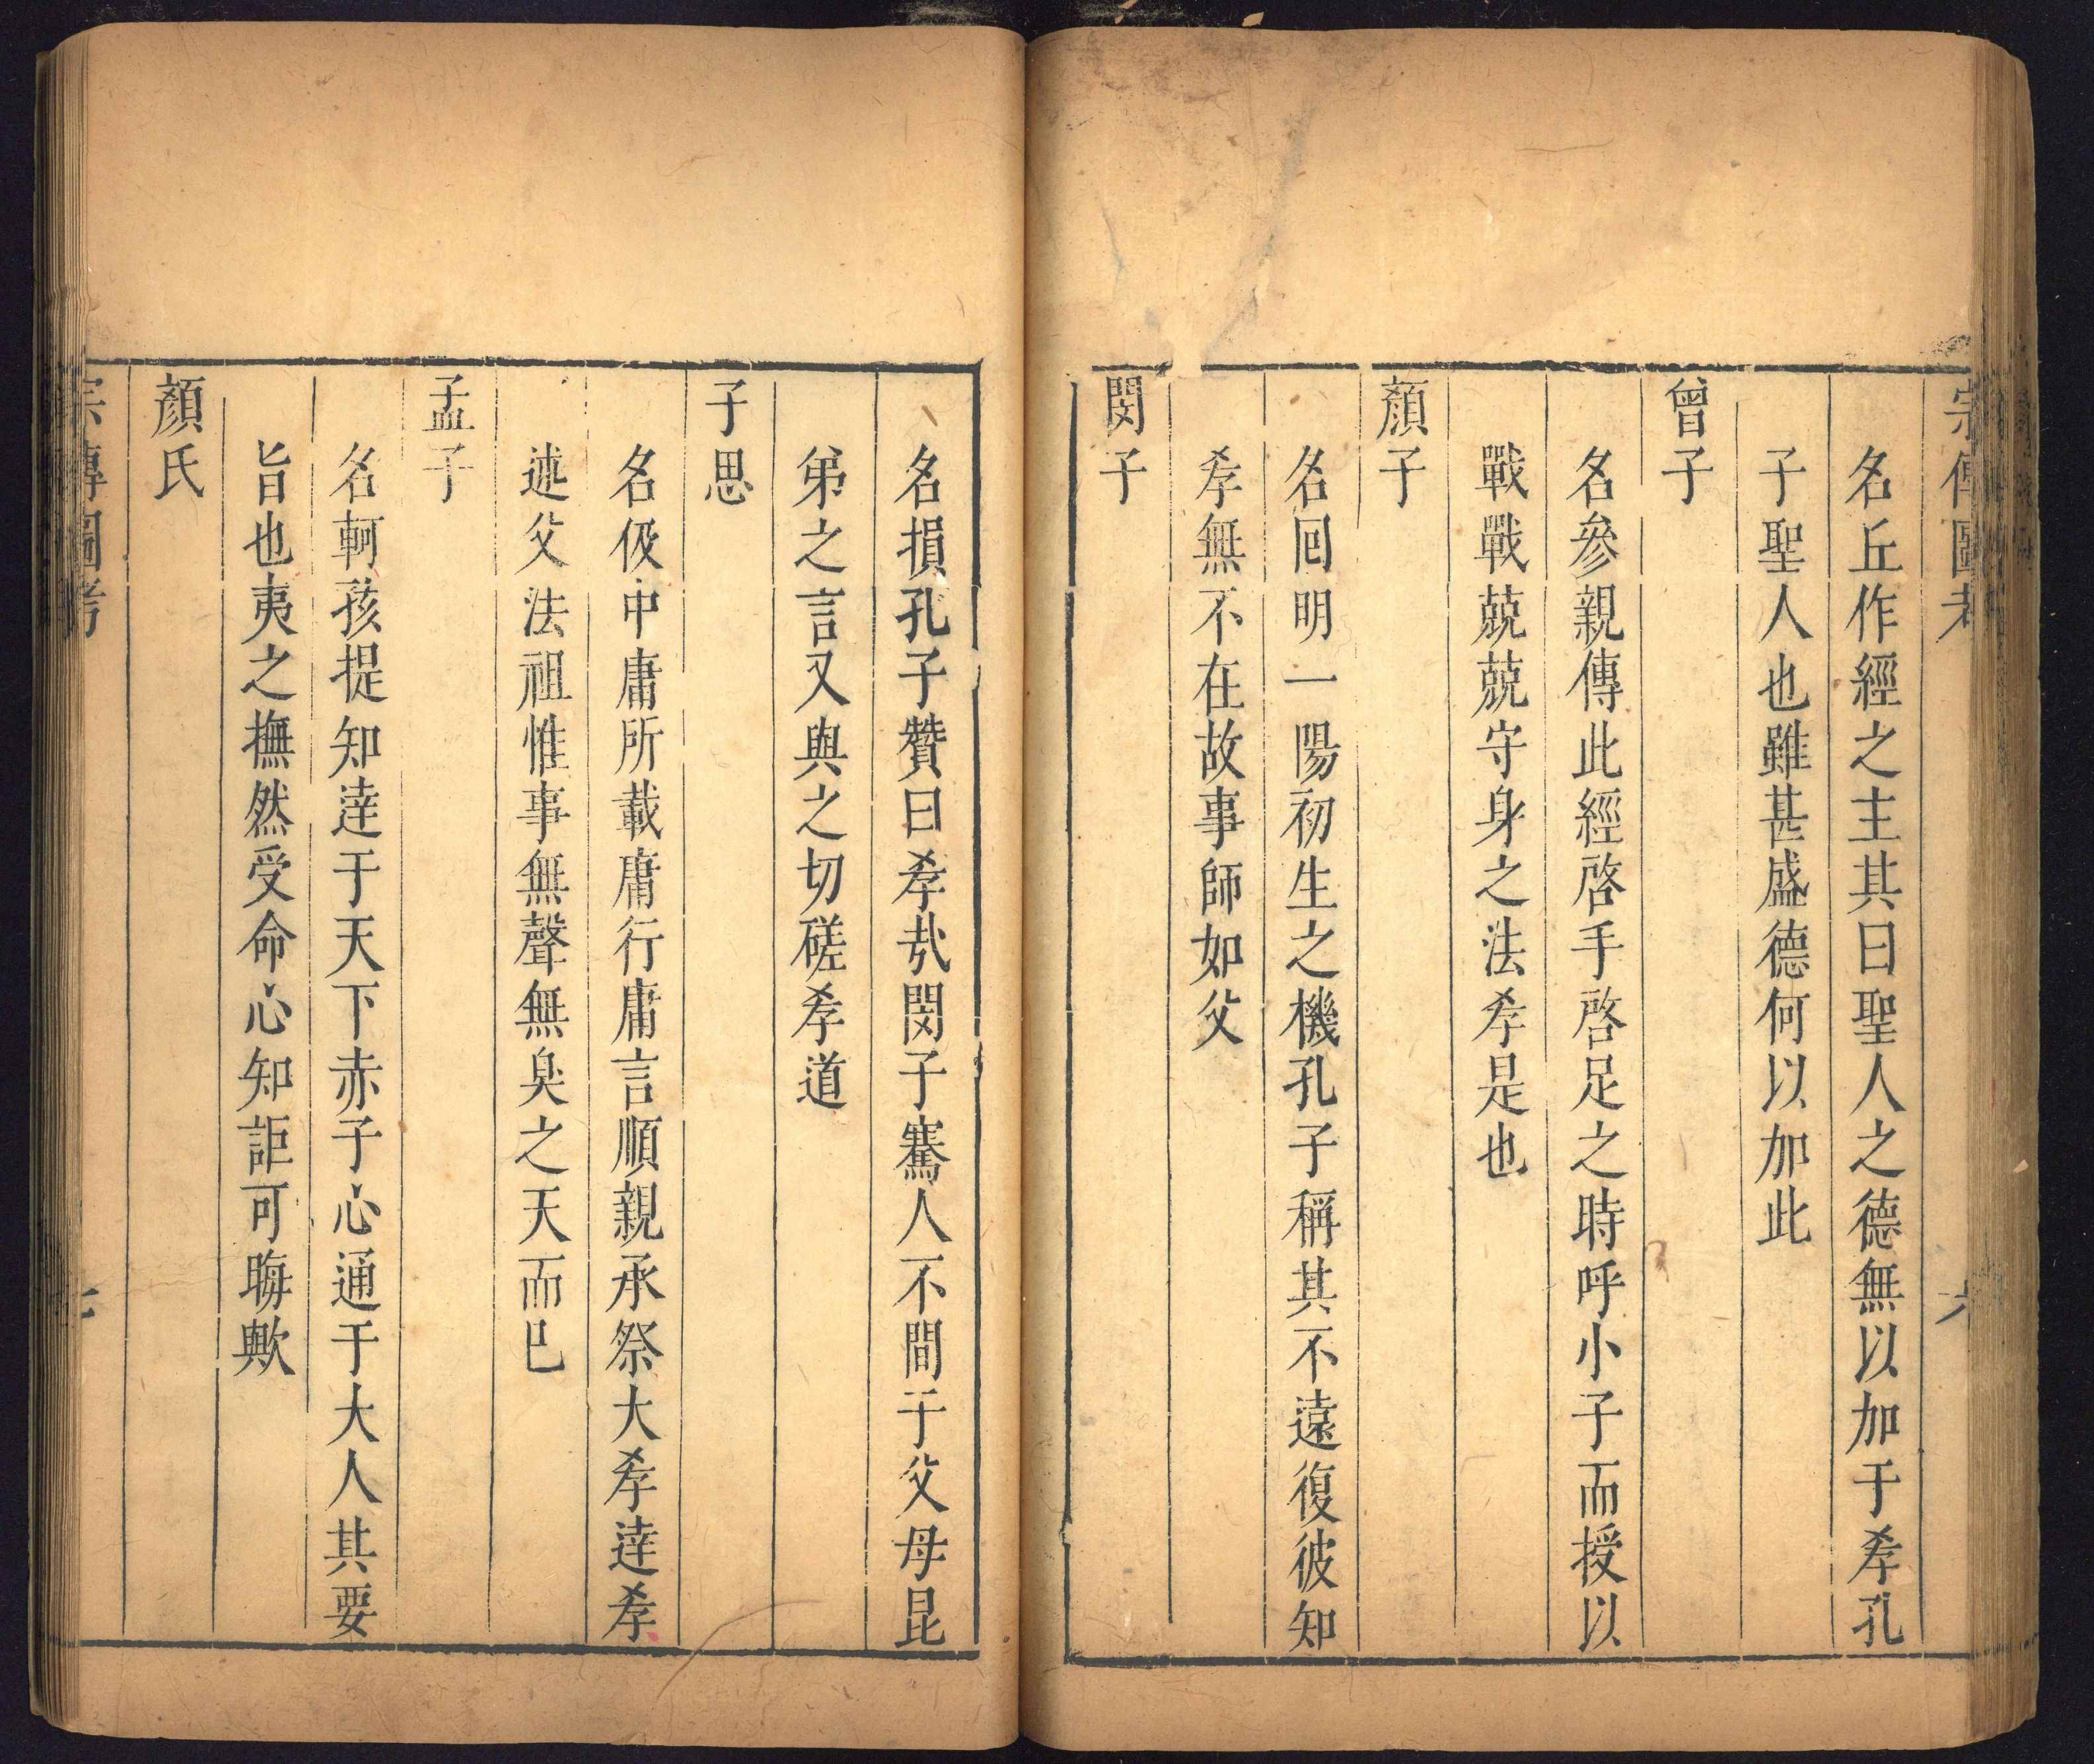 宗傳圖考
六
名丘作經之主其曰聖人之德無以加于孝孔
子聖人也雖甚盛德何以加此
曾子
名參親傳此經啓手啓足之時呼小子而授以
戰戰兢兢守身之法孝是也
顏子
名回明一陽初生之機孔子稱其不遠復彼知
孝無不在故事師如父
閔子
名損孔子贊曰孝㢤閔子騫人不間于父母昆
弟之言又與之切磋孝道
子思
名伋中庸所載庸行庸言順親承祭大孝達孝
述父法祖惟事無聲無臭之天而已
孟子
名軻孩提知達于天下赤子心通于大人其要
旨也夷之憮然受命心知詎可晦歟
顏氏
宗傳圖考